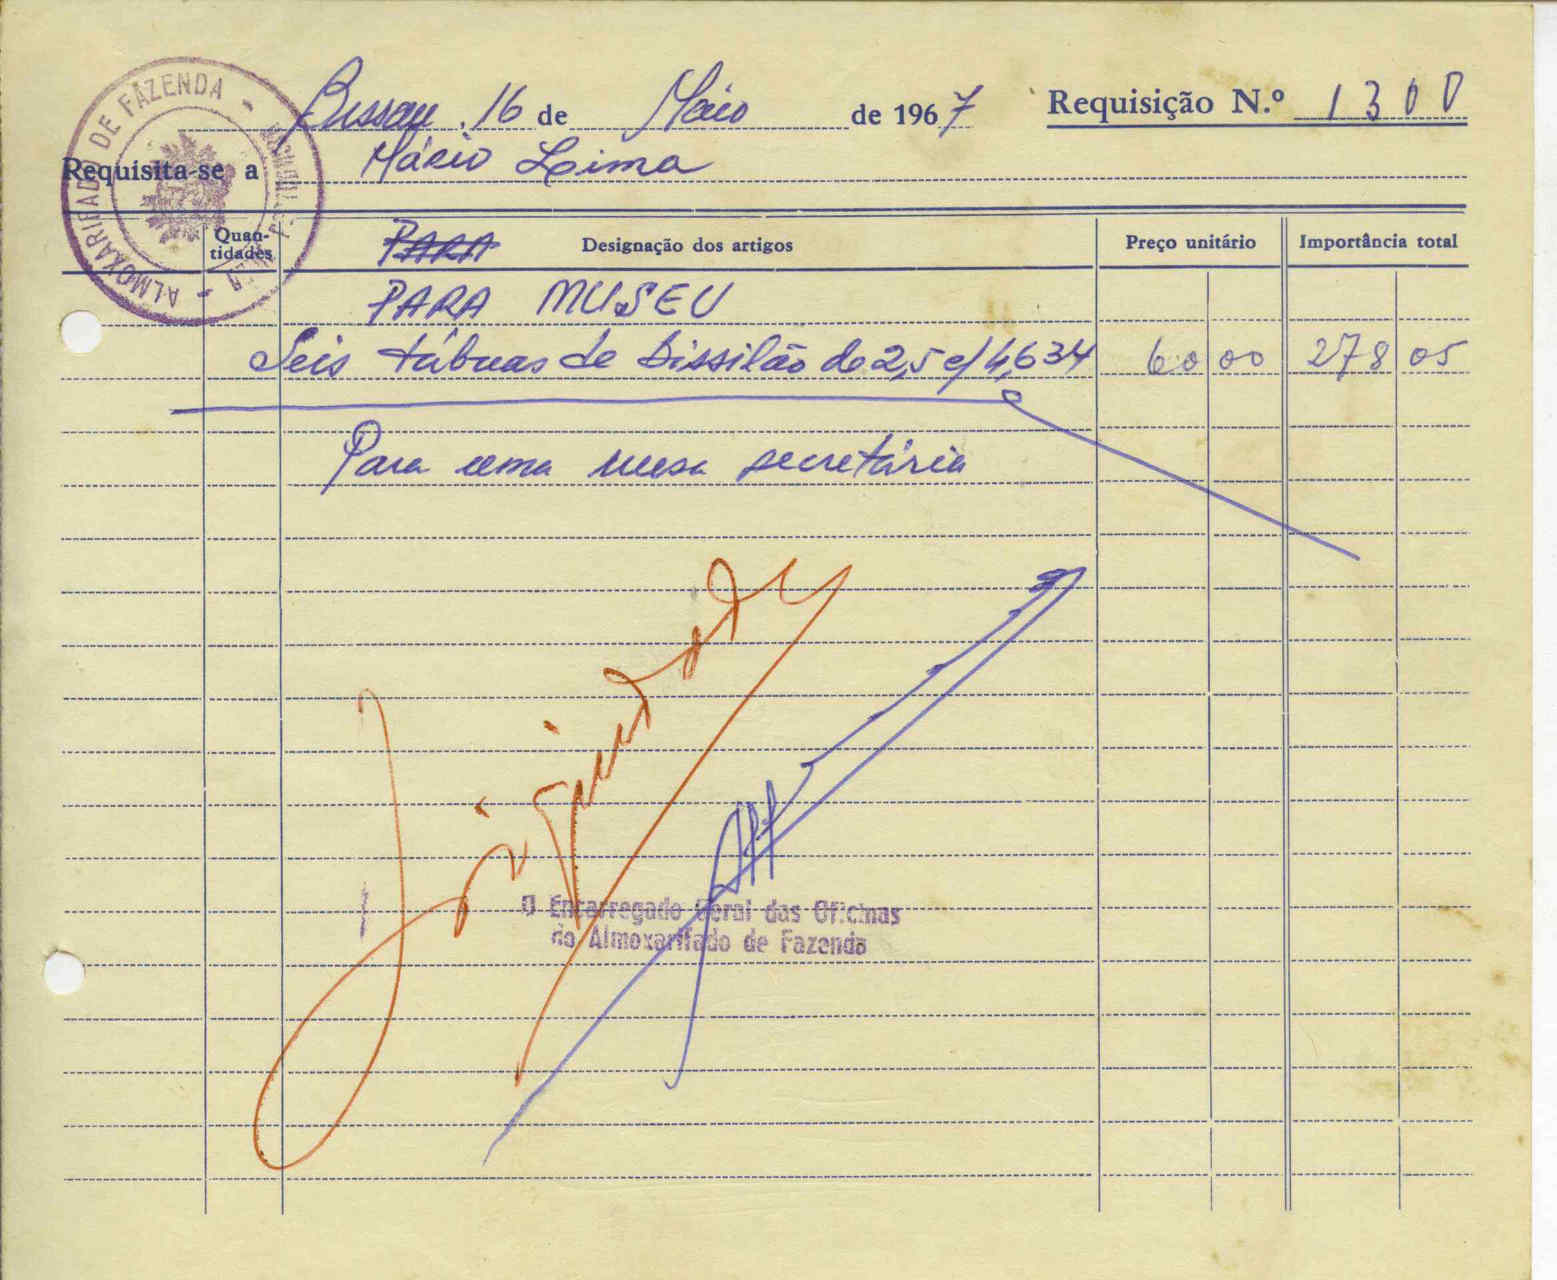 ALMOXARIFADO DE FAZENDA
Bissau, 16 de Máio de 1967 Requisição N.º 1300
Requisita-se a Mário Lima
Quan-
tidades PARA Designação dos artigos Preço unitário Importância total
PARA MUSEU
Seis tábuas de bissilão de 2,5 c/ 4,634 60 00 278 05
Para uma mesa secretária
O Encarregado Geral das Oficinas
do Almoxarifado de Fazenda